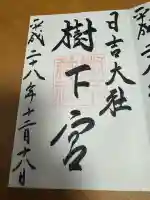 日吉大社
樹下宮
平成二十八年十二月十八日
平成二十八